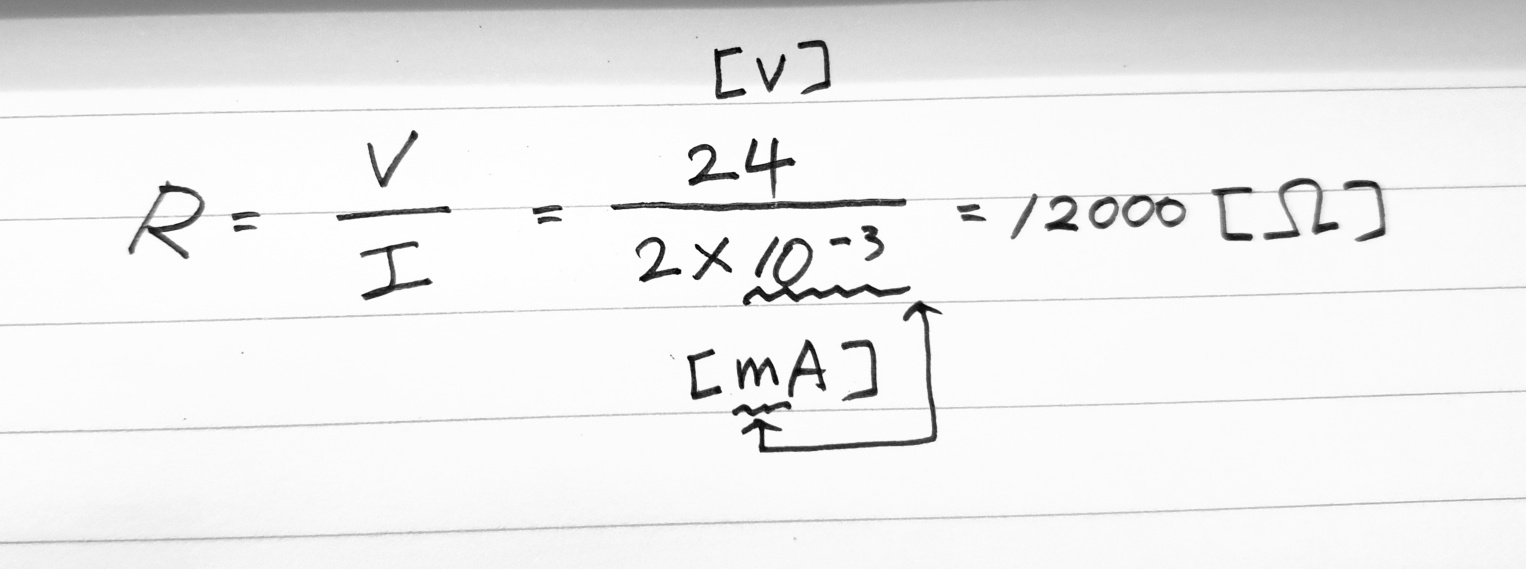 [V]
R = V/I = 24/(2 × 10⁻³) = 12000 [Ω]
[mA]